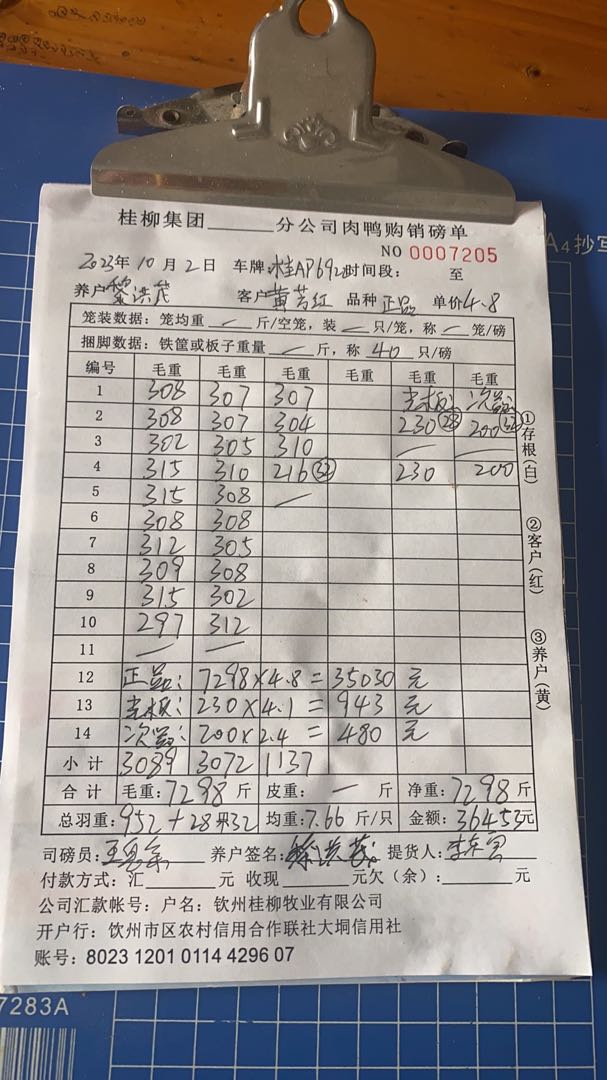 桂柳集团______分公司肉鸭购销磅单
NO 0007205
A4抄写
2023年10月2日 车牌:桂AP692 时间段: 至
养户 黎洪茂 客户 黄芳红 品种 正品 单价4.8
笼装数据: 笼均重 — 斤/空笼, 装 — 只/笼, 称 — 笼/磅
捆脚数据: 铁筐或板子重量 — 斤, 称 40 只/磅
编号 毛重 毛重 毛重 毛重 毛重 毛重
1 308 307 307 次品:
2 308 307 304 230 (28) 200 (32)
3 302 305 310 — —
4 315 310 216 (32) 230 200
5 315 308 —
6 308 308
7 312 305
8 309 308
9 315 302
10 297 312
11 — —
12 正品: 7298×4.8=35030元
13 230×4.1=943元
14 次品: 200×2.4=480元
小计 3089 3072 1137
合计 毛重:7298斤 皮重: — 斤 净重:7298斤
总羽重:952+28+32 均重:7.66斤/只 金额:36453元
司磅员: 养户签名:黎洪茂 提货人:
付款方式: 汇______元 收现______元欠(余):______元
公司汇款帐号: 户名: 钦州桂柳牧业有限公司
开户行: 钦州市区农村信用合作联社大垌信用社
账号: 8023 1201 0114 4296 07
①存根(白)
②客户(红)
③养户(黄)
7283A